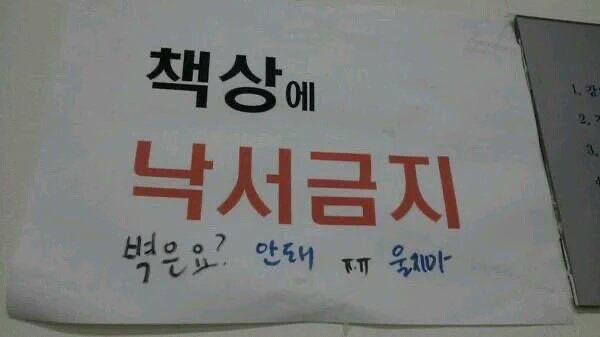 책상에
낙서금지
벽은요? 안돼 ㅠ.ㅠ 울지마
1.
2.
3.